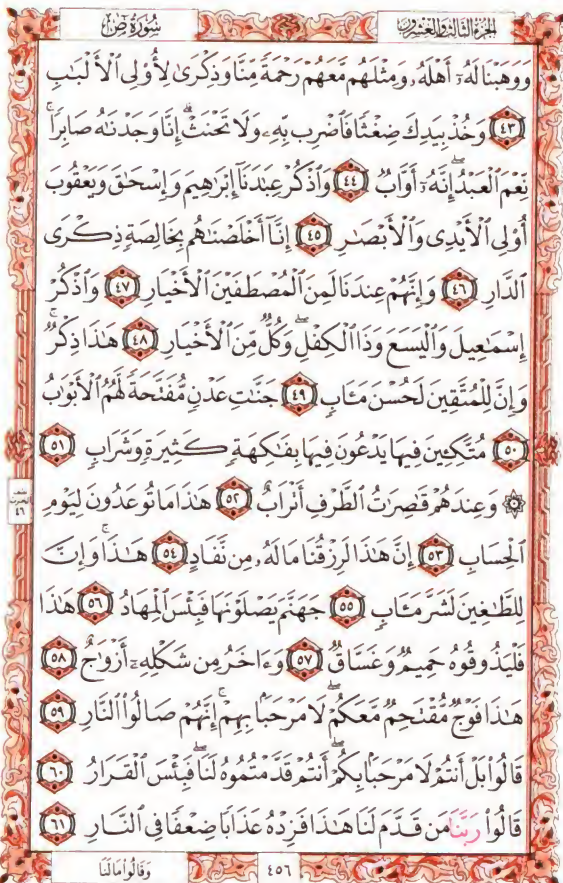 الجزء الثالث والعشرون
سورة ص
وَوَهَبْنَا لَهُۥٓ أَهْلَهُۥ وَمِثْلَهُم مَّعَهُمْ رَحْمَةً مِّنَّا وَذِكْرَىٰ لِأُو۟لِى ٱلْأَلْبَـٰبِ
٤٣ وَخُذْ بِيَدِكَ ضِغْثًا فَٱضْرِب بِّهِۦ وَلَا تَحْنَثْ ۗ إِنَّا وَجَدْنَـٰهُ صَابِرًا ۚ
نِّعْمَ ٱلْعَبْدُ ۖ إِنَّهُۥٓ أَوَّابٌ ٤٤ وَٱذْكُرْ عِبَـٰدَنَآ إِبْرَٰهِيمَ وَإِسْحَـٰقَ وَيَعْقُوبَ
أُو۟لِى ٱلْأَيْدِى وَٱلْأَبْصَـٰرِ ٤٥ إِنَّآ أَخْلَصْنَـٰهُم بِخَالِصَةٍ ذِكْرَى
ٱلدَّارِ ٤٦ وَإِنَّهُمْ عِندَنَا لَمِنَ ٱلْمُصْطَفَيْنَ ٱلْأَخْيَارِ ٤٧ وَٱذْكُرْ
إِسْمَـٰعِيلَ وَٱلْيَسَعَ وَذَا ٱلْكِفْلِ ۖ وَكُلٌّ مِّنَ ٱلْأَخْيَارِ ٤٨ هَـٰذَا ذِكْرٌ ۚ
وَإِنَّ لِلْمُتَّقِينَ لَحُسْنَ مَـَٔابٍ ٤٩ جَنَّـٰتِ عَدْنٍ مُّفَتَّحَةً لَّهُمُ ٱلْأَبْوَٰبُ
٥٠ مُتَّكِـِٔينَ فِيهَا يَدْعُونَ فِيهَا بِفَـٰكِهَةٍ كَثِيرَةٍ وَشَرَابٍ ٥١
۞ وَعِندَهُمْ قَـٰصِرَٰتُ ٱلطَّرْفِ أَتْرَابٌ ٥٢ هَـٰذَا مَا تُوعَدُونَ لِيَوْمِ
نصف الحزب ٤٦
ٱلْحِسَابِ ٥٣ إِنَّ هَـٰذَا لَرِزْقُنَا مَا لَهُۥ مِن نَّفَادٍ ٥٤ هَـٰذَا ۚ وَإِنَّ
لِلطَّـٰغِينَ لَشَرَّ مَـَٔابٍ ٥٥ جَهَنَّمَ يَصْلَوْنَهَا فَبِئْسَ ٱلْمِهَادُ ٥٦ هَـٰذَا
فَلْيَذُوقُوهُ حَمِيمٌ وَغَسَّاقٌ ٥٧ وَءَاخَرُ مِن شَكْلِهِۦٓ أَزْوَٰجٌ ٥٨
هَـٰذَا فَوْجٌ مُّقْتَحِمٌ مَّعَكُمْ ۖ لَا مَرْحَبًۢا بِهِمْ ۚ إِنَّهُمْ صَالُوا۟ ٱلنَّارِ ٥٩
قَالُوا۟ بَلْ أَنتُمْ لَا مَرْحَبًۢا بِكُمْ ۖ أَنتُمْ قَدَّمْتُمُوهُ لَنَا ۖ فَبِئْسَ ٱلْقَرَارُ ٦٠
قَالُوا۟ رَبَّنَا مَن قَدَّمَ لَنَا هَـٰذَا فَزِدْهُ عَذَابًا ضِعْفًا فِى ٱلنَّارِ ٦١
٤٥٦
وَقَالُوا۟ مَا لَنَا